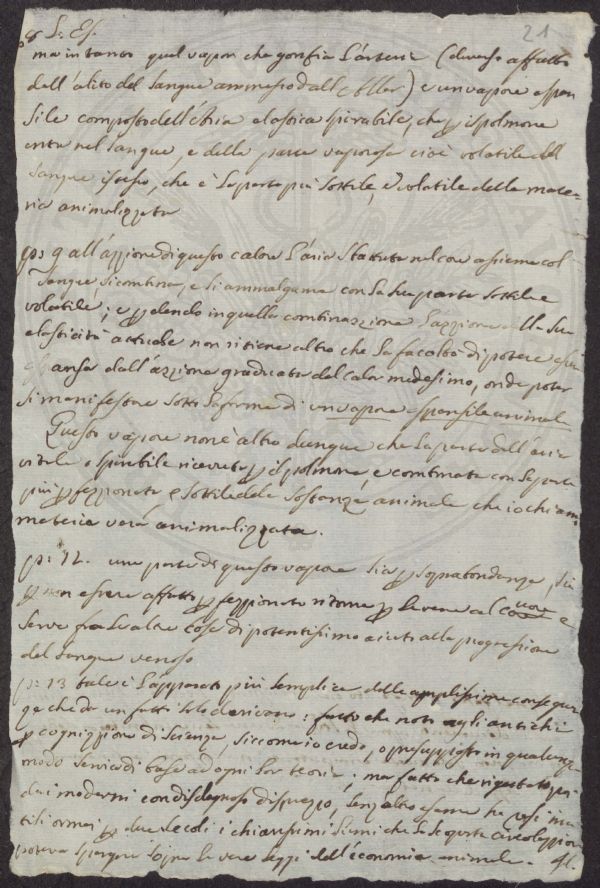 21
ma in tanto quel vapor che gonfia l'arterie (diverso affatto
dall'alito del sangue ammesso dall'Haller) è un vapore espan
sile composto dell'Aria elastica spirabile, che p il polmone
entra nel sangue, e della parte vaporosa cioè volatile del
sangue istesso, che è la parte più sottile, e volatile della mate-
ria animalizzata
p: 9 all'azzione di questo calore l'aria sbattuta nel cuore assieme col
sangue si combina, e si ammalgama con la sua parte sottile e
volatile; e p dendo in quella combinazzione l'azzione della sua
elasticità attuale non ritiene altro che la facoltà di potere
dall'azzione graduata del calor medesimo, onde poter
si manifestare sotto la forma di un vapore espansile animal
Questo vapore non è altro dunque che la parte dell'aria
vitale o spirabile ricevuta p il polmone e combinata con la parte
più p fezzionata, e sottile della sostanza animale che io chiamo
materia vera animalizzata.
p: 12. una parte di questo vapore sia p soprabondanza, sia
p non essere affatto p fezzionato ritorna p le vene al cuore e
serve fra le altre cose di potentissimo aiuto alla progressione
del sangue venoso
p: 13 tale è l'apparato più semplice delle amplissime conseguen
ze che da un fatto solo derivano: fatto che noto agli antichi
p cognizzione di scienza, siccome io credo, o presupposto in qualunque
modo servì di base ad ogni lor teoria; ma fatto che rigettato poi
dai moderni con disdegnoso disprezzo, senz'altro esame ha resi inu
tili ormai p due secoli i chiarissimi lumi che la scoperta circolazzione
poteva spargere sopra le vere leggi dell'economia animale.